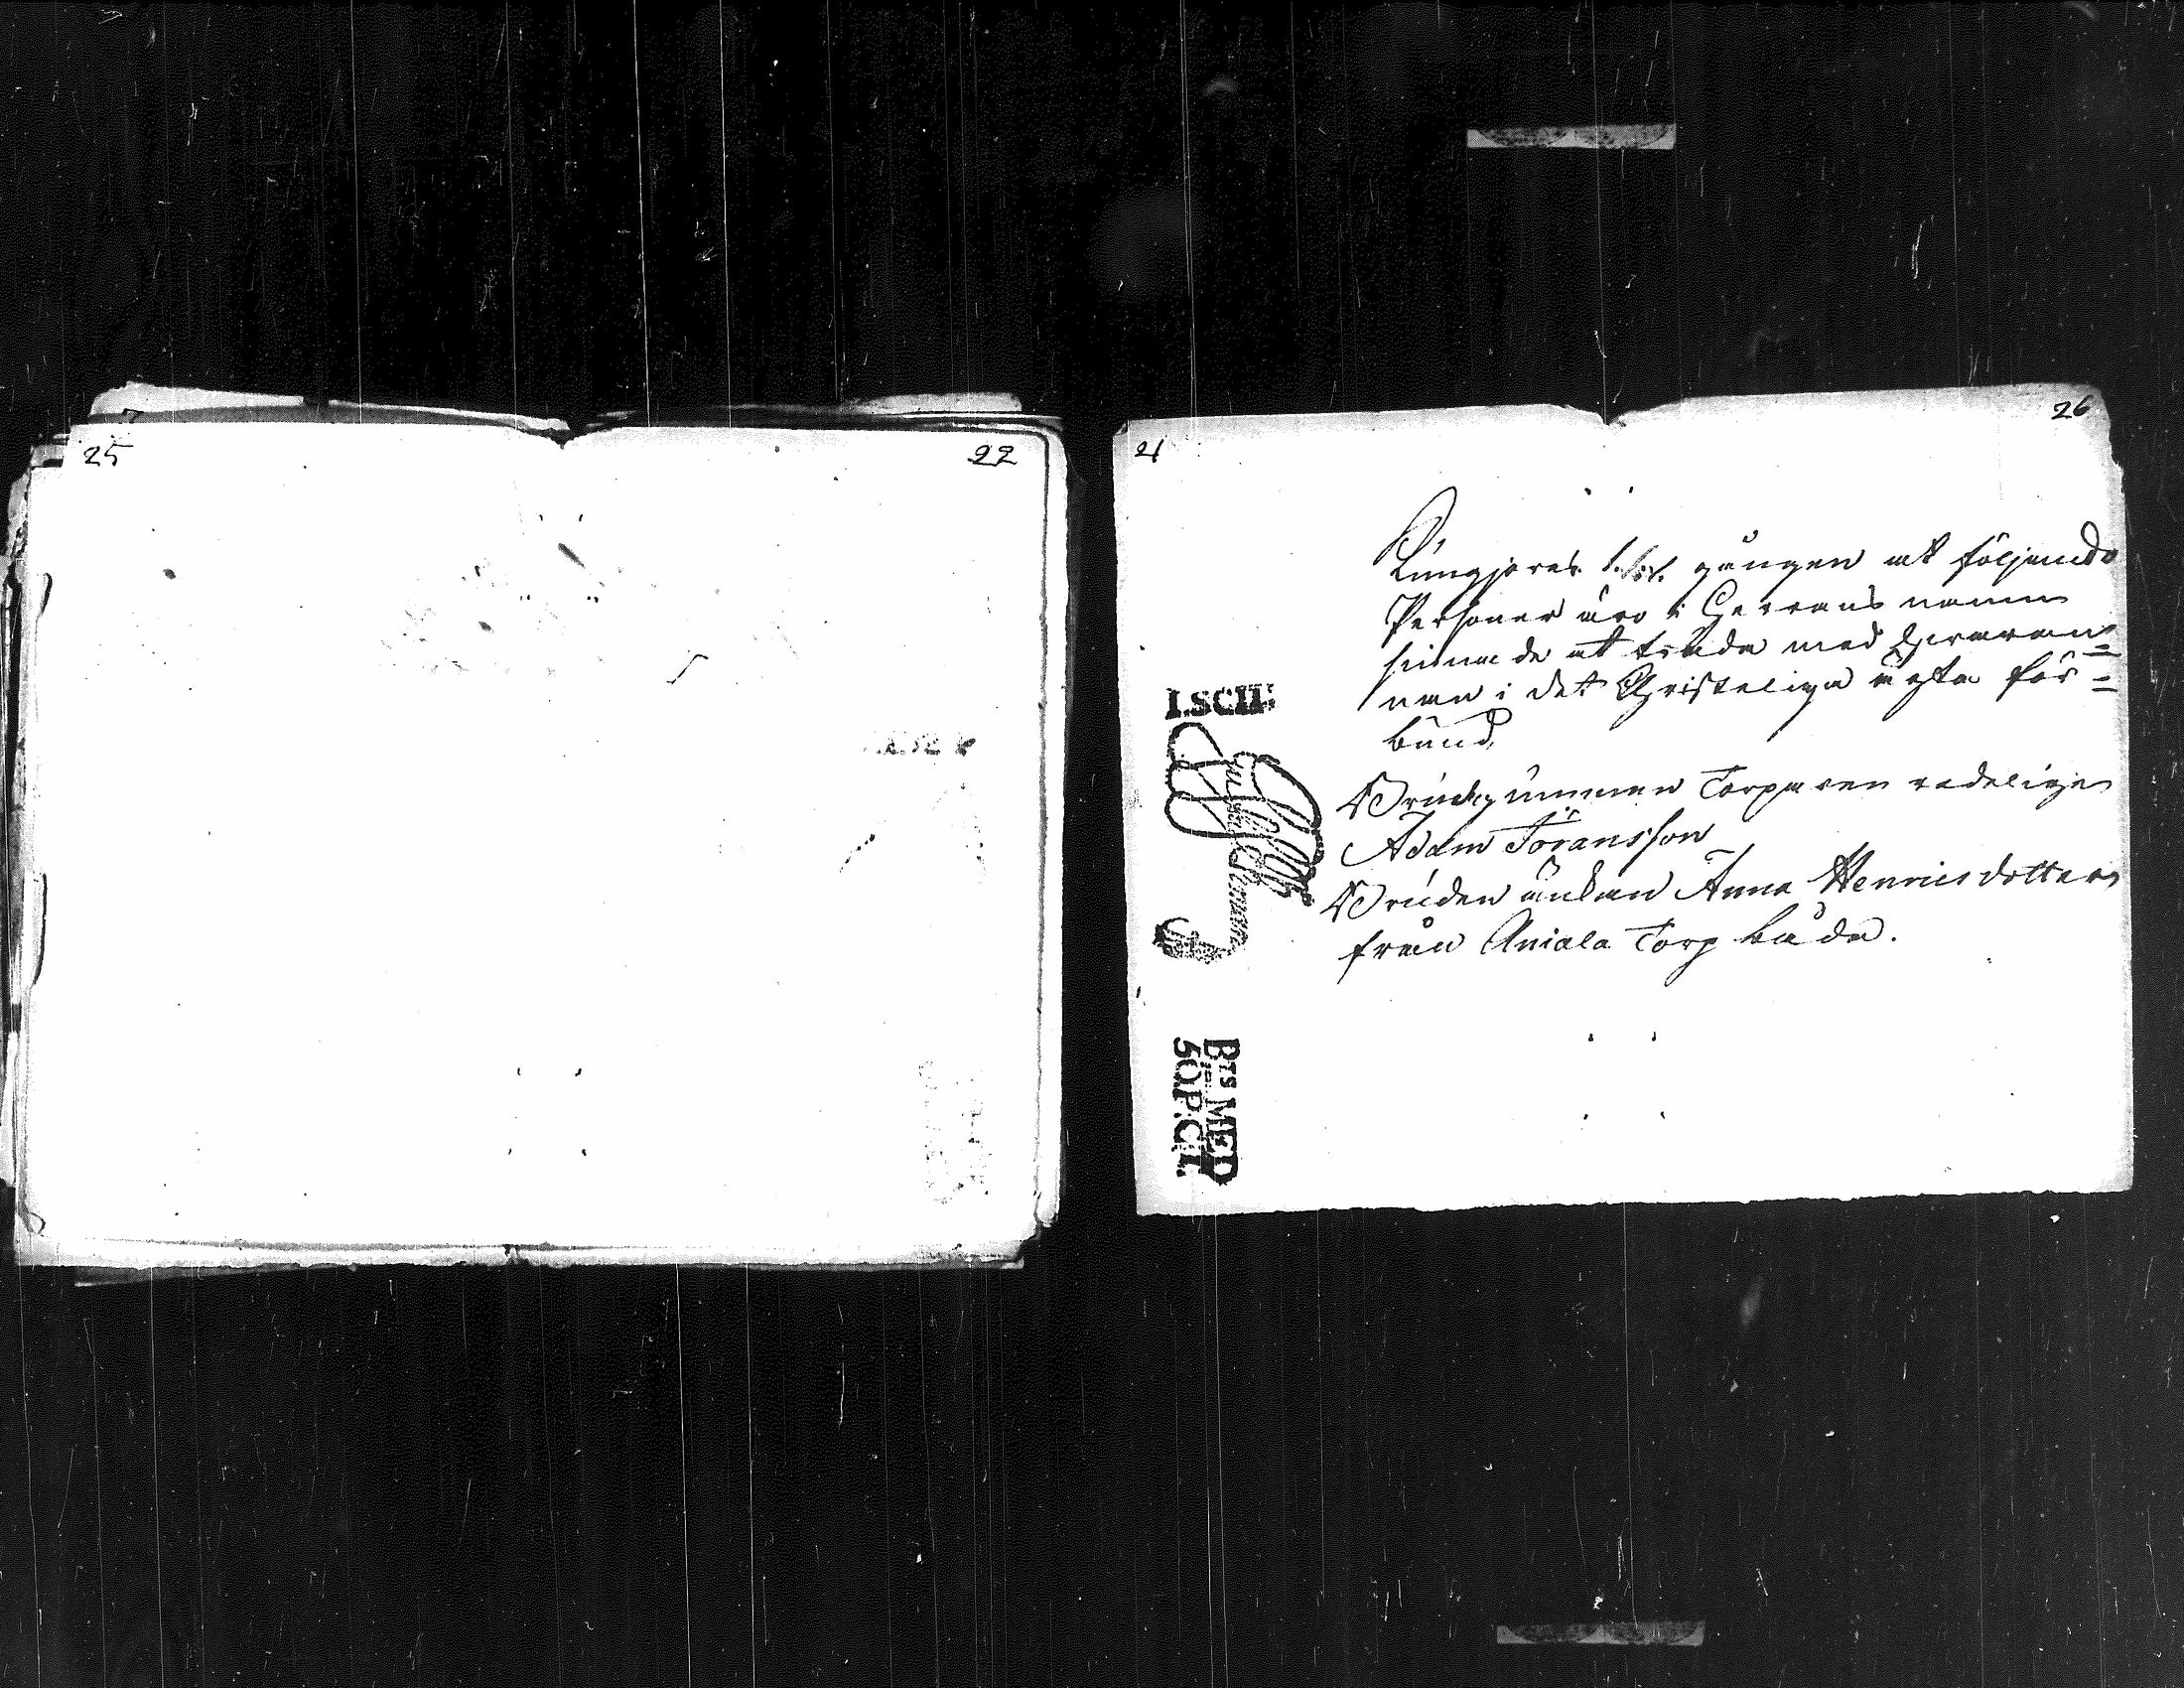 25
22
21
26
Kungjöres 1. gången at följande
Personer äro i Herrans namn
sinnade at träda med hvaran=
nan i det Christeliga ägta för=
bund,
Brudgummen Torparen redelige
Adam Töransson
Bruden änkan Anna Henricsdotter
från Aniala Torp båda.
1.SCII:
BTS MED
50P:CT.